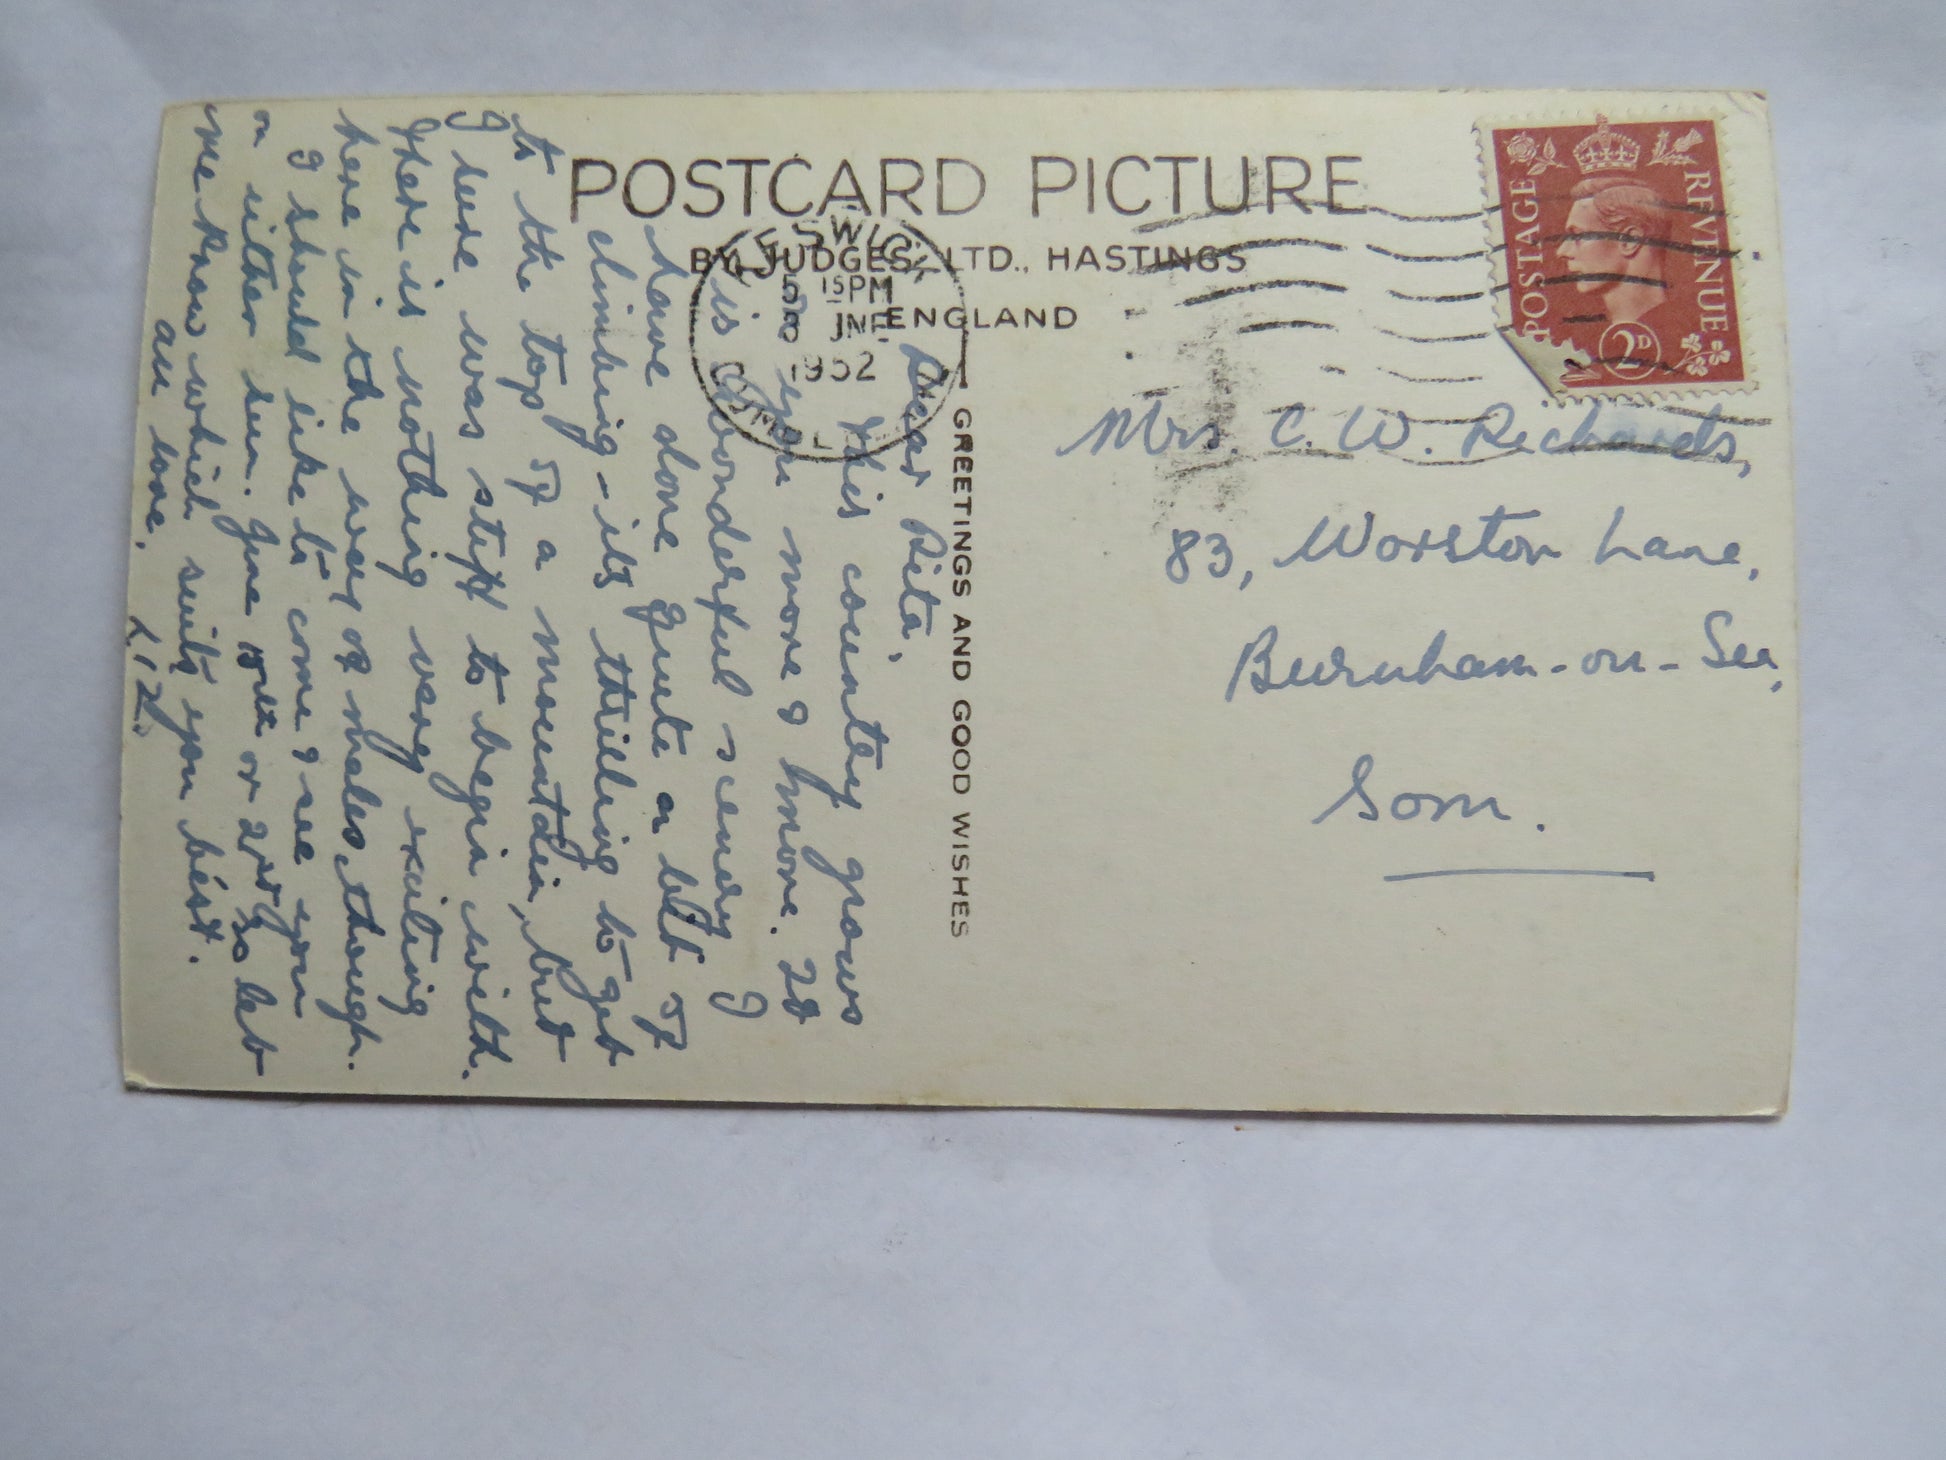 POSTCARD PICTURE
BY JUDGES LTD., HASTINGS
ENGLAND
GREETINGS AND GOOD WISHES
KESWICK
5 15 PM
JNE
1952
POSTAGE
REVENUE
2D
Mrs. C. W. Richards,
83, Worston Lane,
Burnham-on-Sea,
Som.
Dear Rita,
this country grows
on you more & more. It
is wonderful scenery I
have done quite a bit of
climbing - its thrilling to get
to the top of a mountain, but
I sure was stiff to begin with.
There is nothing very exciting
here in the way of males, though.
I should like to come & see you
on either Sun. June 15th or 22nd so let
me know which suits you best.
All love,
LIZ.